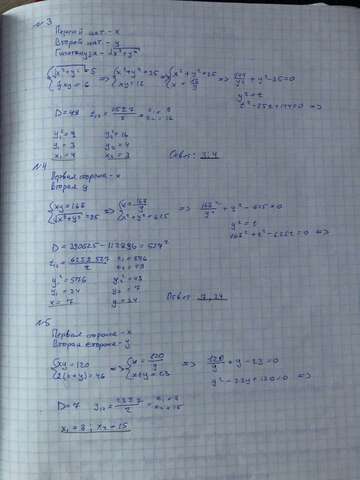 №3
Первый кат. - x
Второй кат. - y
Гипотенуза - √x²+y²
{√x²+y² = 5 => {x²+y²=25 => {x²+y²=25 => 144/y² + y²-25=0
xy = 12 x = 12/y
y²=t
t²-25t+144=0 =>
D=49 t₁,₂ = 25±7/2 = t₁=9 t₂=16
y₁²=9 y₂²=16
y₁=3 y₂=4
x₁=4 x₂=3 Ответ: 3;4
№4
Первая сторона - x
Вторая y
{xy=168 {x=168/y => 168²/y² + y² - 625=0
√x²+y²=25 => x²+y²=625
y²=t
168²+t²-625t=0 =>
D=390625-112896=527²
t₁,₂ = 625±527/2 t₁=576 t₂=49
y₁²=576 y₂²=49
y₁=24 y₂=7
x=7 x=24 Ответ: 7,24
№5
Первая сторона - x
Вторая сторона - y
{xy=120 => {x=120/y => 120/y + y - 23=0
2(x+y)=46 x+y=23
y²-23y+120=0 =>
D=7 y₁,₂ = 23±7/2 = x₁=8 x₂=15
x₁=8; x₂=15